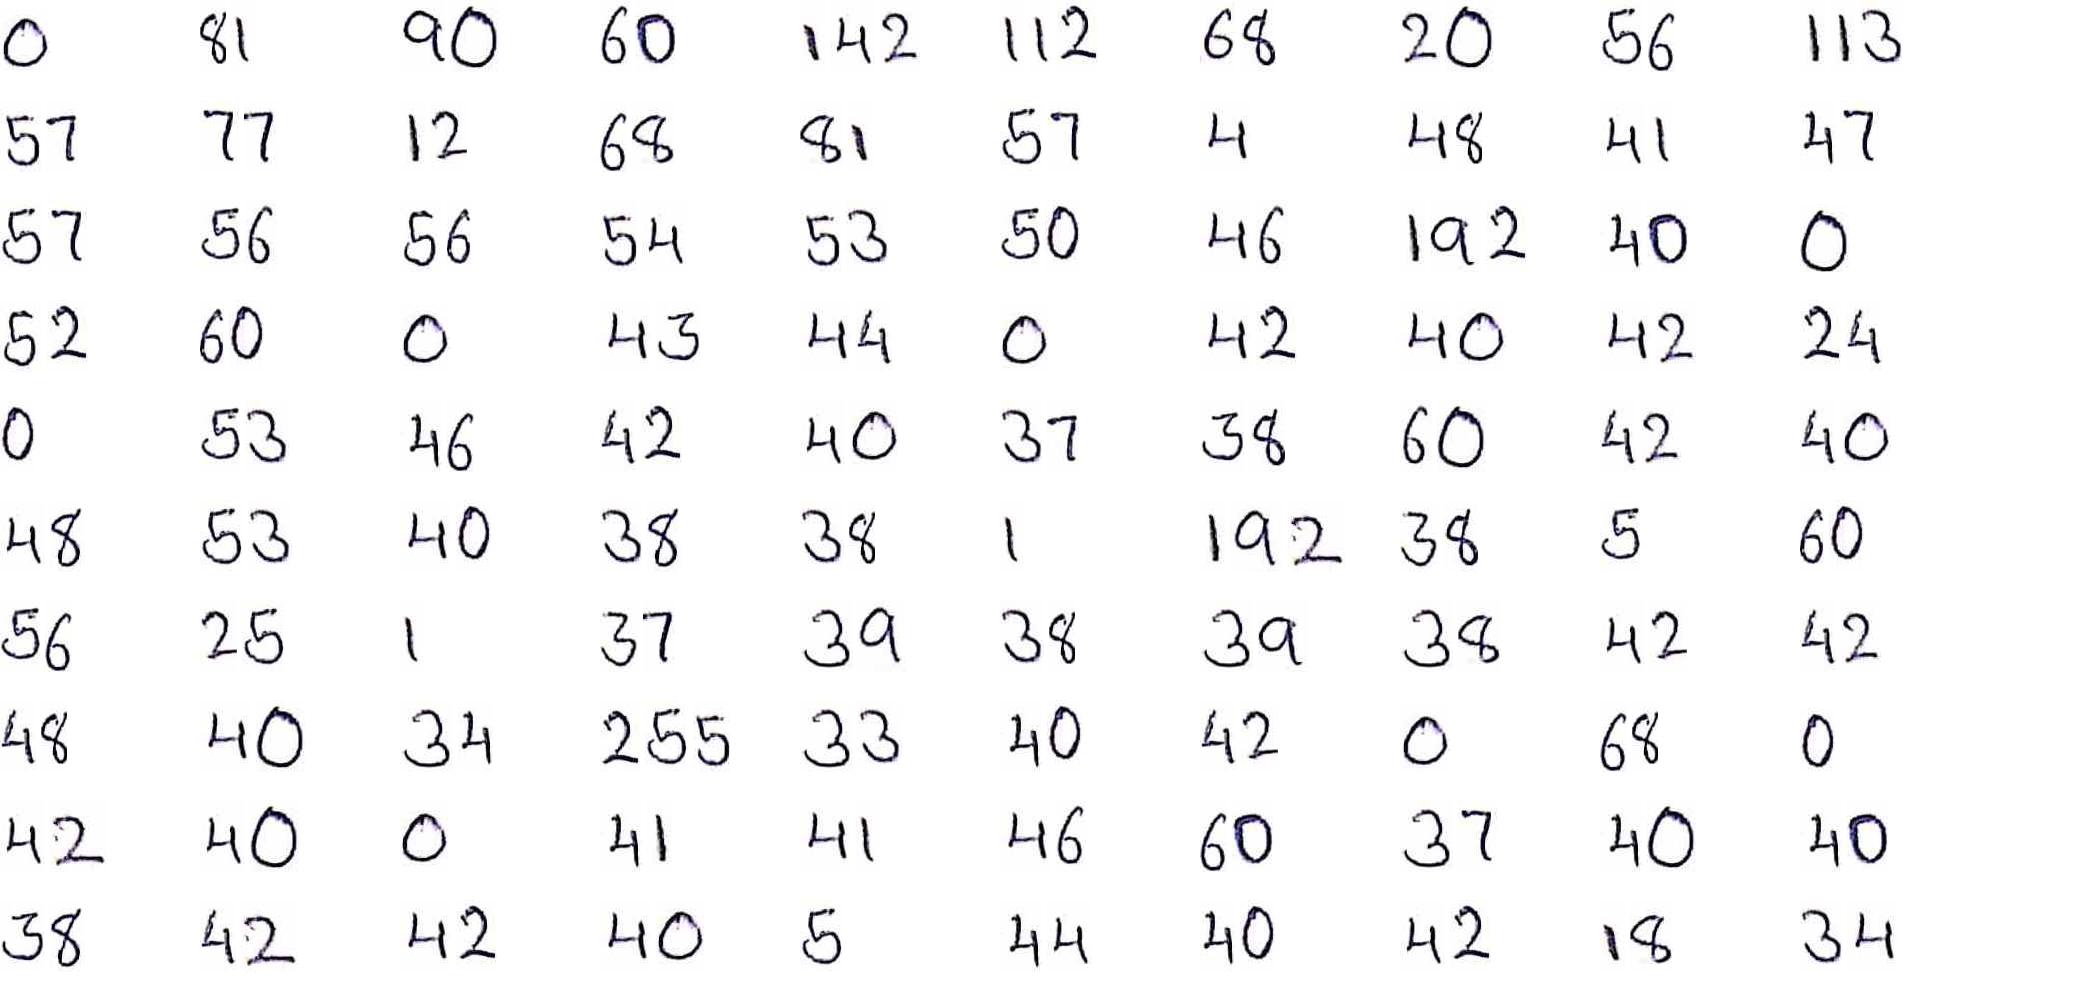 0 81 90 60 142 112 68 20 56 113
57 77 12 68 81 57 4 48 41 47
57 56 56 54 53 50 46 192 40 0
52 60 0 43 44 0 42 40 42 24
0 53 46 42 40 37 38 60 42 40
48 53 40 38 38 1 192 38 5 60
56 25 1 37 39 38 39 38 42 42
48 40 34 255 33 40 42 0 68 0
42 40 0 41 41 46 60 37 40 40
38 42 42 40 5 44 40 42 18 34